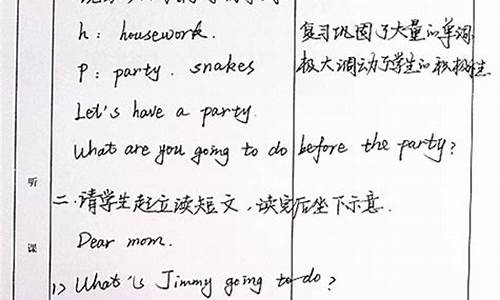 h: housework.
复习巩固了大量的单词
P: party. snakes
极大调动了学生的积极性.
Let's have a party.
What are you going to do before the party?
听
二.请学生起立读短文,读完后坐下示意.
课
Dear mom.
1) What is Jimmy going to do?